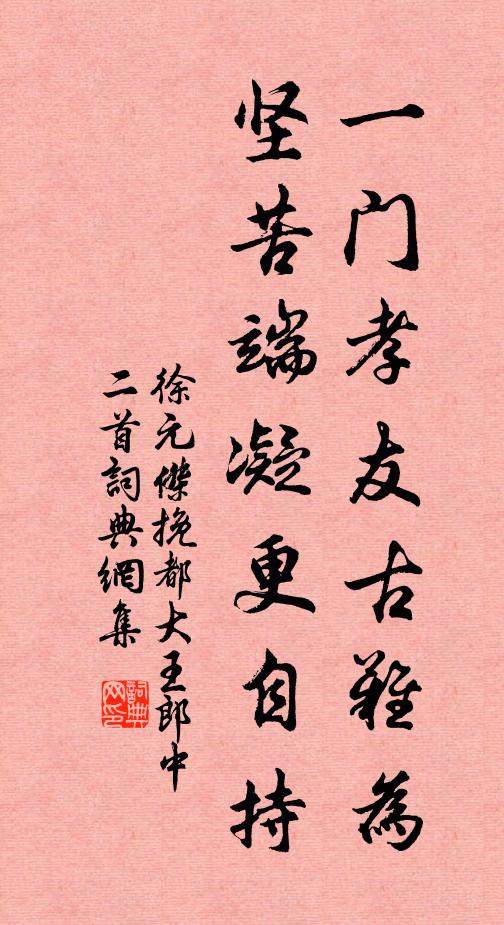 一门孝友古难為
坚苦端凝更自持
徐元傑挽都大王郎中
二首詞典網集
詞典网印